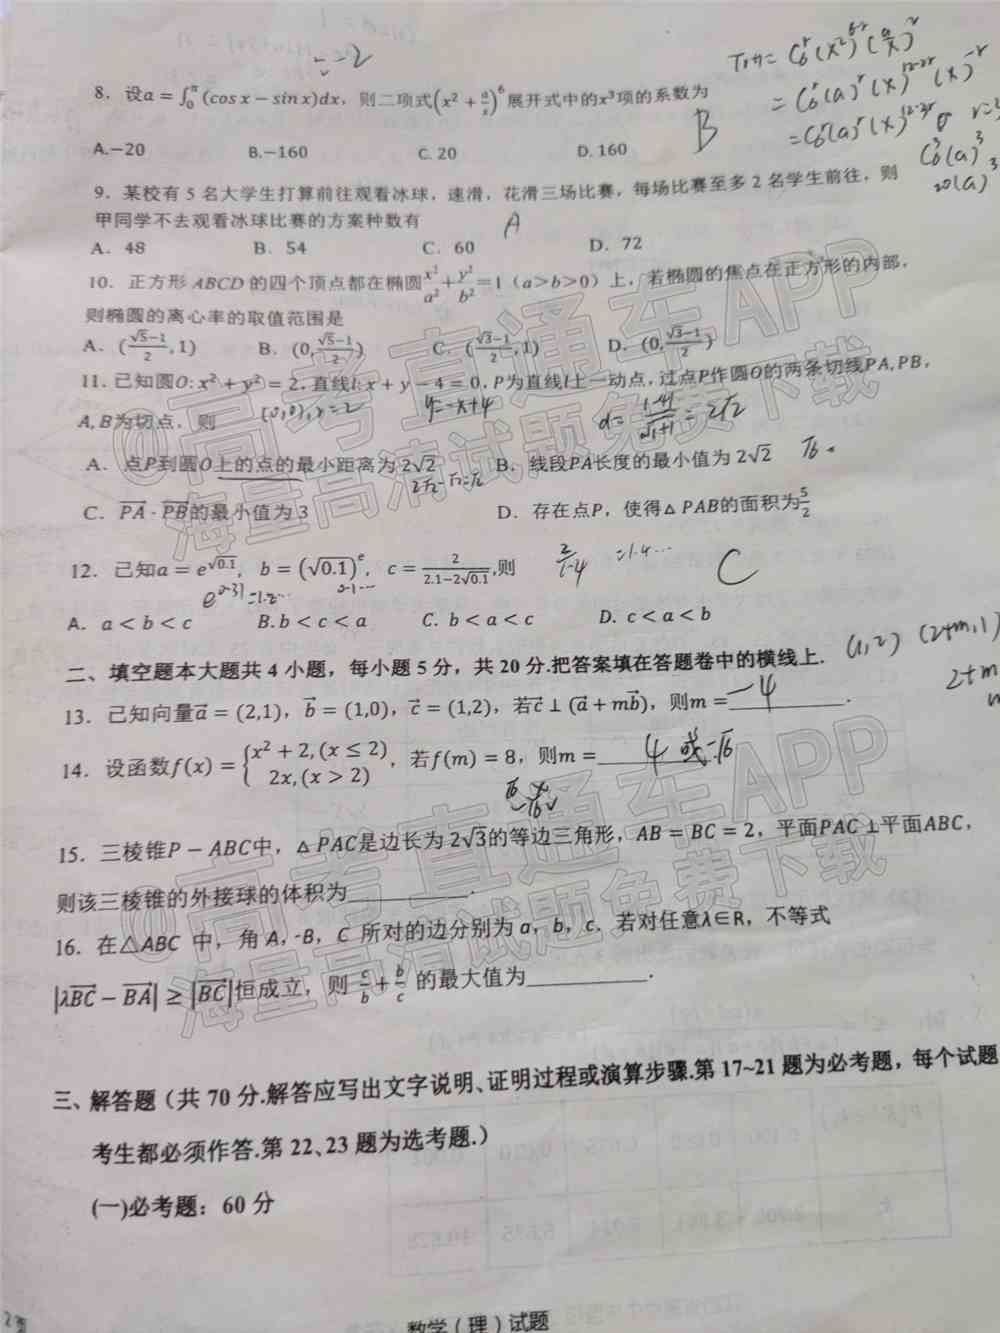 = -2
8．设a=∫₀^π(cosx−sinx)dx，则二项式(x²+a/x)⁶展开式中的x³项的系数为
B
A.−20  B.−160  C. 20  D. 160
9．某校有 5 名大学生打算前往观看冰球，速滑，花滑三场比赛，每场比赛至多 2 名学生前往，则
甲同学不去观看冰球比赛的方案种数有
A
A．48  B．54  C．60  D．72
10．正方形 ABCD 的四个顶点都在椭圆x²/a²+y²/b²=1（a>b>0）上，若椭圆的焦点在正方形的内部，
则椭圆的离心率的取值范围是
A．((√5−1)/2,1)  B．(0,(√5−1)/2)  C．((√3−1)/2,1)  D．(0,(√3−1)/2)
11．已知圆O:x²+y²=2，直线l:x+y−4=0，P为直线l上一动点，过点P作圆O的两条切线PA,PB，
A,B为切点，则
(0,0), r=2
y=-x+4
d=|-4|/√1+1=2√2
A．点P到圆O上的点的最小距离为2√2  B．线段PA长度的最小值为2√2
√6
2√2-√2=√2
C．PA⃗·PB⃗的最小值为3  D．存在点P，使得△PAB的面积为5/2
12．已知a=e^√0.1，b=(√0.1)^e，c=2/(2.1−2√0.1),则
=1.4…
C
A．a<b<c  B.b<c<a  C．b<a<c  D．c<a<b
二、填空题本大题共 4 小题，每小题 5 分，共 20 分.把答案填在答题卷中的横线上.
(1,2) (2+m,1)
2+m
13．已知向量a⃗=(2,1)，b⃗=(1,0)，c⃗=(1,2)，若c⃗⊥(a⃗+mb⃗)，则m=-4.
14．设函数f(x)={x²+2,(x≤2) 2x,(x>2)，若f(m)=8，则m=4或-√6
15．三棱锥P−ABC中，△PAC是边长为2√3的等边三角形，AB=BC=2，平面PAC⊥平面ABC，
则该三棱锥的外接球的体积为________.
16．在△ABC 中，角 A，B，C 所对的边分别为 a，b，c．若对任意λ∈R，不等式
|λBC⃗−BA⃗|≥|BC⃗|恒成立，则 c/b+b/c 的最大值为________.
三、解答题（共 70 分.解答应写出文字说明、证明过程或演算步骤.第 17~21 题为必考题，每个试题
考生都必须作答.第 22、23 题为选考题.）
(一)必考题：60 分
数学（理）试题
@高考直通车APP
海量高清试题免费下载
@高考直通车APP
海量高清试题免费下载